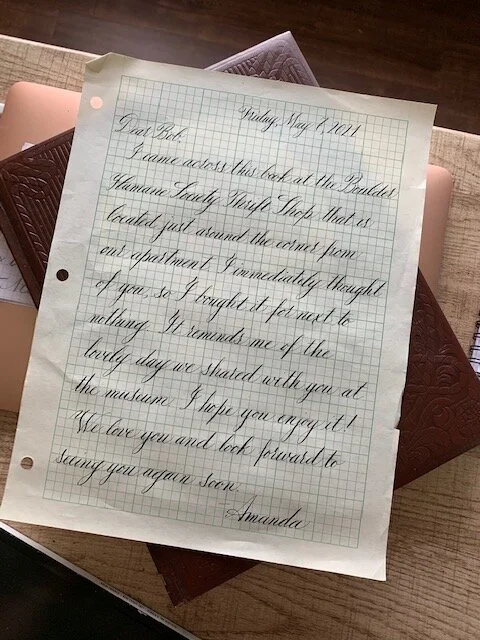 Friday, May 6, 2011
Dear Bob,
I came across this book at the Boulder
Humane Society Thrift Shop that is
located just around the corner from
our apartment. I immediately thought
of you, so I bought it for next to
nothing. It reminds me of the
lovely day we shared with you at
the museum. I hope you enjoy it!
We love you and look forward to
seeing you again soon.
Amanda